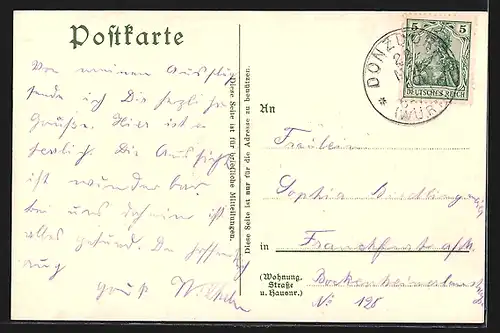 Postkarte
Von meinem Ausflug
sende ich Dir herzliche
Grüße. Hier ist es
herrlich. Die Aussicht
ist wunderbar,
bei uns daheim ist
alles gesund. Du hoffentlich
auch
Gruß Wilhelm
Diese Seite ist für briefliche Mitteilungen.
Diese Seite ist nur für die Adresse zu benützen.
DONZDORF
(WÜRTT)
5 5
DEUTSCHES REICH
An
Fräulein
Sophia
in Frankfurt a/M.
(Wohnung, Straße u. Hausnr.)
Bockenheimerlandstr.
No 125